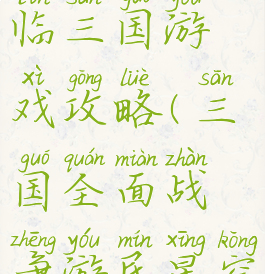 lín sān guó yóu
临三国游
xì gōng lüè sān
戏攻略(三
guó quán miàn zhàn
国全面战
zhēng yóu mín xīng kōng
争游民星空